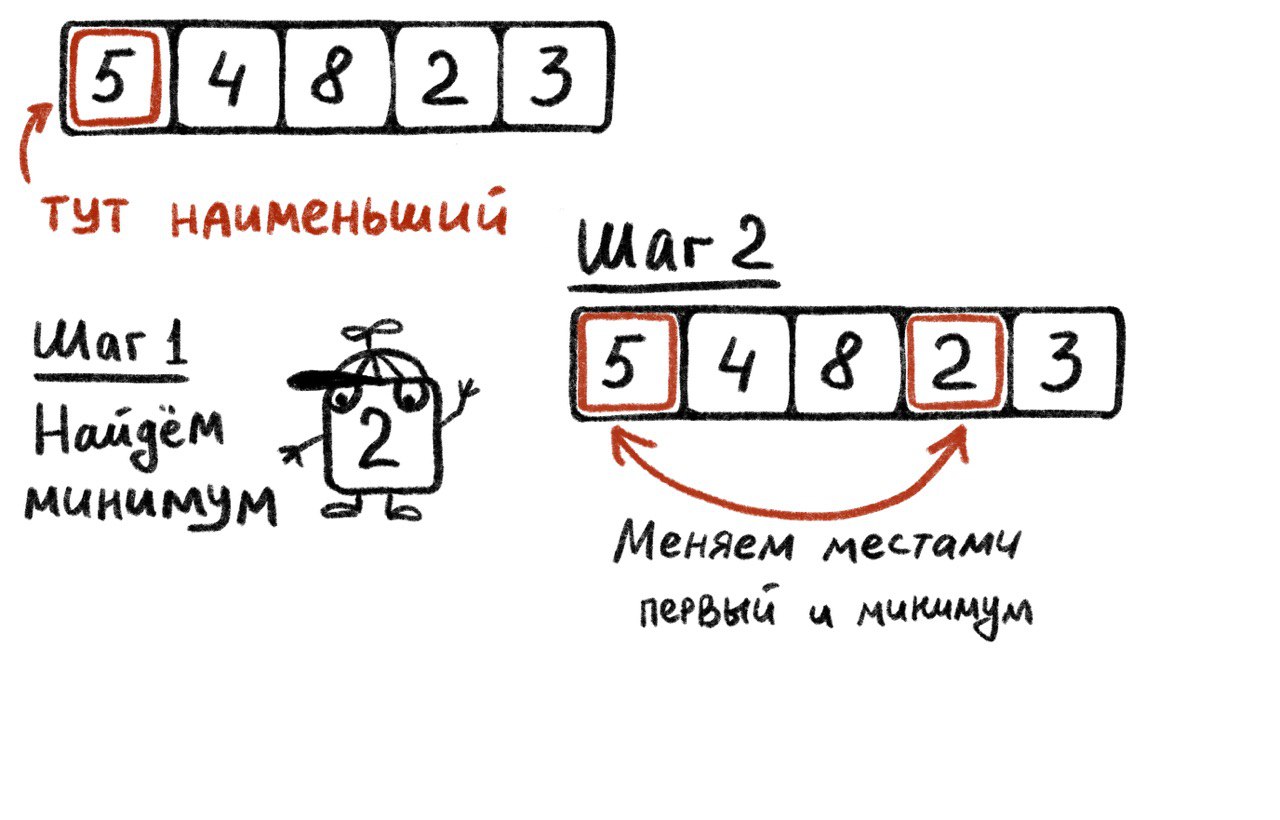 5 4 8 2 3
тут наименьший
Шаг 1
Найдём
минимум
2
Шаг 2
5 4 8 2 3
Меняем местами
первый и минимум